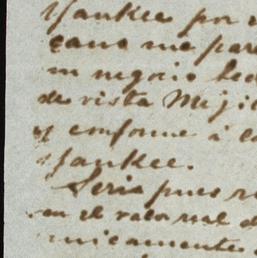 Yankee por
cano me pare
un negocio
de vista Meji
y conforme á
Yankee.
Seria pues
en el
unicamente